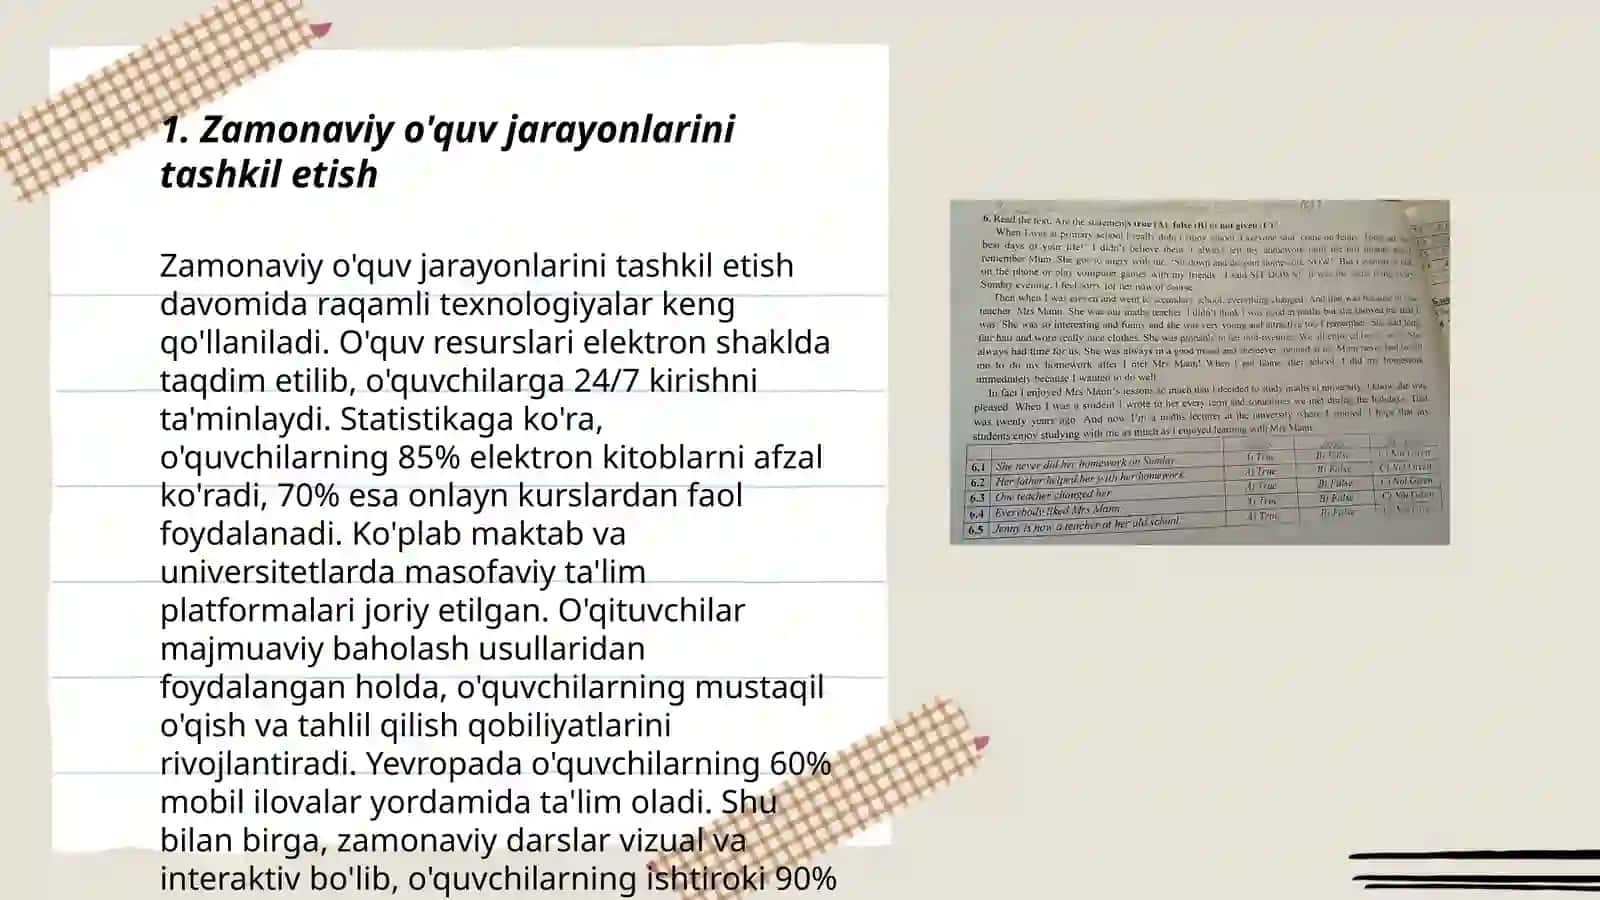 1. Zamonaviy o'quv jarayonlarini
tashkil etish
Zamonaviy o'quv jarayonlarini tashkil etish
davomida raqamli texnologiyalar keng
qo'llaniladi. O'quv resurslari elektron shaklda
taqdim etilib, o'quvchilarga 24/7 kirishni
ta'minlaydi. Statistikaga ko'ra,
o'quvchilarning 85% elektron kitoblarni afzal
ko'radi, 70% esa onlayn kurslardan faol
foydalanadi. Ko'plab maktab va
universitetlarda masofaviy ta'lim
platformalari joriy etilgan. O'qituvchilar
majmuaviy baholash usullaridan
foydalangan holda, o'quvchilarning mustaqil
o'qish va tahlil qilish qobiliyatlarini
rivojlantiradi. Yevropada o'quvchilarning 60%
mobil ilovalar yordamida ta'lim oladi. Shu
bilan birga, zamonaviy darslar vizual va
interaktiv bo'lib, o'quvchilarning ishtiroki 90%
6. Read the text. Are the statements true (A), false (B) or not given (C)?
When I was at primary school I really didn't enjoy school. Everyone said
best days of your life!" I didn't believe them. I always left my homework until the last
remember Mum. She got so angry with me. 'Sit down and do your homework NOW!' But I
on the phone or play computer games with my friends. I said SIT DOWN!' It was the same thing every
Sunday evening. I feel sorry for her now of course.
Then when I was eleven and went to secondary school, everything changed. And that was because of
teacher, Mrs Mann. She was our maths teacher. I didn't think I was good at maths but she showed me that I
was. She was so interesting and funny and she was very young and attractive too I remember. She had long
fair hair and wore really nice clothes. She was probably in her mid-twenties. We all enjoyed
always had time for us. She was always in a good mood and
me to do my homework after I met Mrs Mann! When I got home after school I did my homework
immediately because I wanted to do well.
In fact I enjoyed Mrs Mann's lessons so much that I decided to study maths at university. I know she was
pleased. When I was a student I wrote to her every term and sometimes we met during the holidays. That
was twenty years ago. And now I'm a maths lecturer at the university where I studied. I hope that my
students enjoy studying with me as much as I enjoyed learning with Mrs Mann.
6.1 She never did her homework on Sunday. A) True B) False C) Not Given
6.2 Her father helped her with her homework. A) True B) False C) Not Given
6.3 One teacher changed her A) True B) False C) Not Given
6.4 Everybody liked Mrs Mann. A) True B) False C) Not Given
6.5 Jenny is now a teacher at her old school. A) True B) False